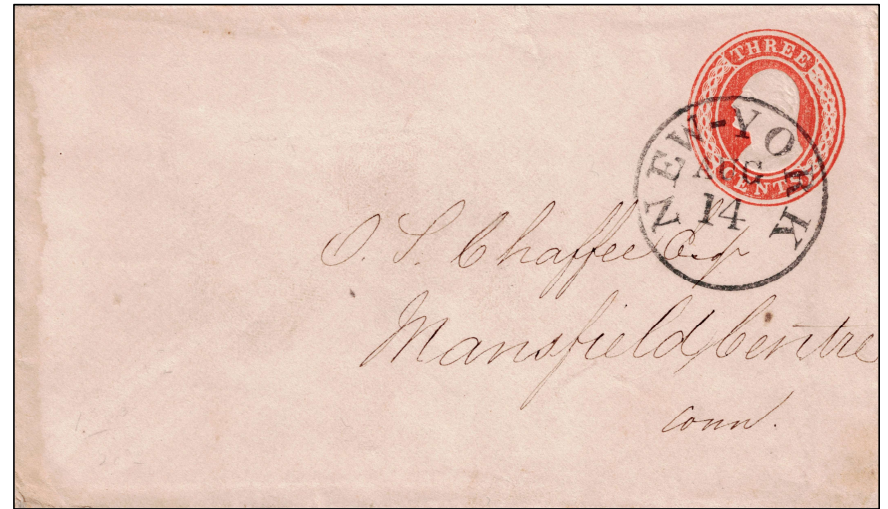 THREE
CENTS
NEW-YORK
AUG
14
O. S. Chaffee Esq
Mansfield Centre
Conn.